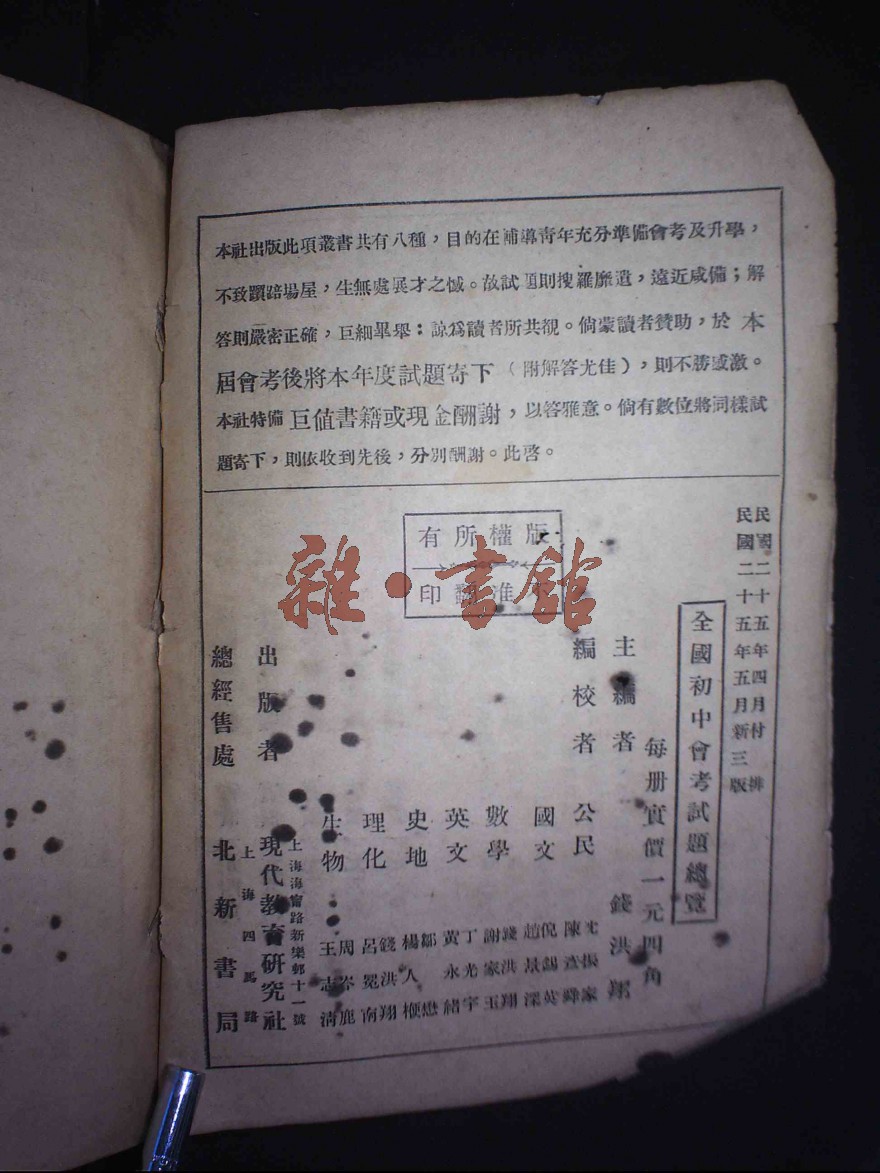 本社出版此項叢書共有八種，目的在補導靑年充分準備會考及升學，
不致躓踣場屋，生無處展才之憾。故試題則搜羅靡遺，遠近咸備；解
答則嚴密正確，巨細畢舉：諒爲讀者所共覩。倘蒙讀者贊助，於本
屆會考後將本年度試題寄下（附解答尤佳），則不勝感激。
本社特備巨值書籍或現金酬謝，以答雅意。倘有數位將同樣試
題寄下，則依收到先後，分別酬謝。此啓。
民國二十五年四月付排
民國二十五年五月新三版
全國初中會考試題總覽
每册實價一元四角
版權所有
翻印
主編者 錢洪翔
編校者 公民 沈振家 陳
國文 倪錫英 趙景深
數學 錢洪翔 謝家玉
英文 丁光宇 黃永緒
史地 鄒懋 楊人楩
理化 錢洪翔 呂冕南
生物 周岑鹿 王志清
出版者 現代教育研究社
上海海甯路新樂邨十一號
總經售處 北新書局
上海四馬路
雜·書館